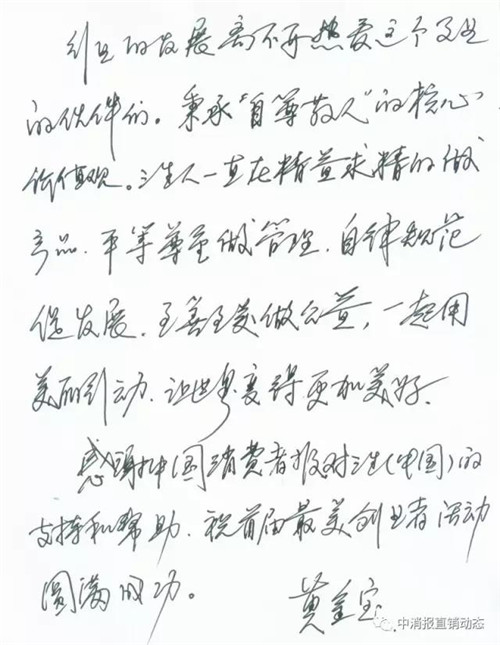 行业的发展离不开热爱这个事业
的伙伴们。秉承“自尊敬人”的核心
价值观。三生人一直在精益求精的做
产品、平等尊重做管理、自律规范
促发展、至善至美做公益，一起用
美丽引动、让世界变得更加美好、
感谢中国消费者报对三生(中国)的
支持和帮助、祝首届最美创业者活动
圆满成功。
黄金宝
中消报直销动态